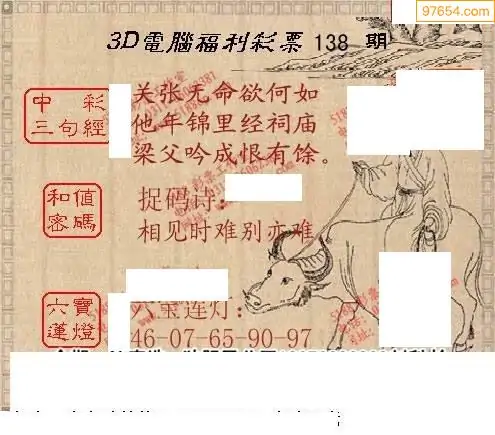 97654.com
3D電腦福利彩票 138 期
中彩
三句經
关张无命欲何如
他年锦里经祠庙
梁父吟成恨有馀。
和值
密碼
捉码诗:
相见时难别亦难
六寶
蓮燈
六宝莲灯:
46-07-65-90-97